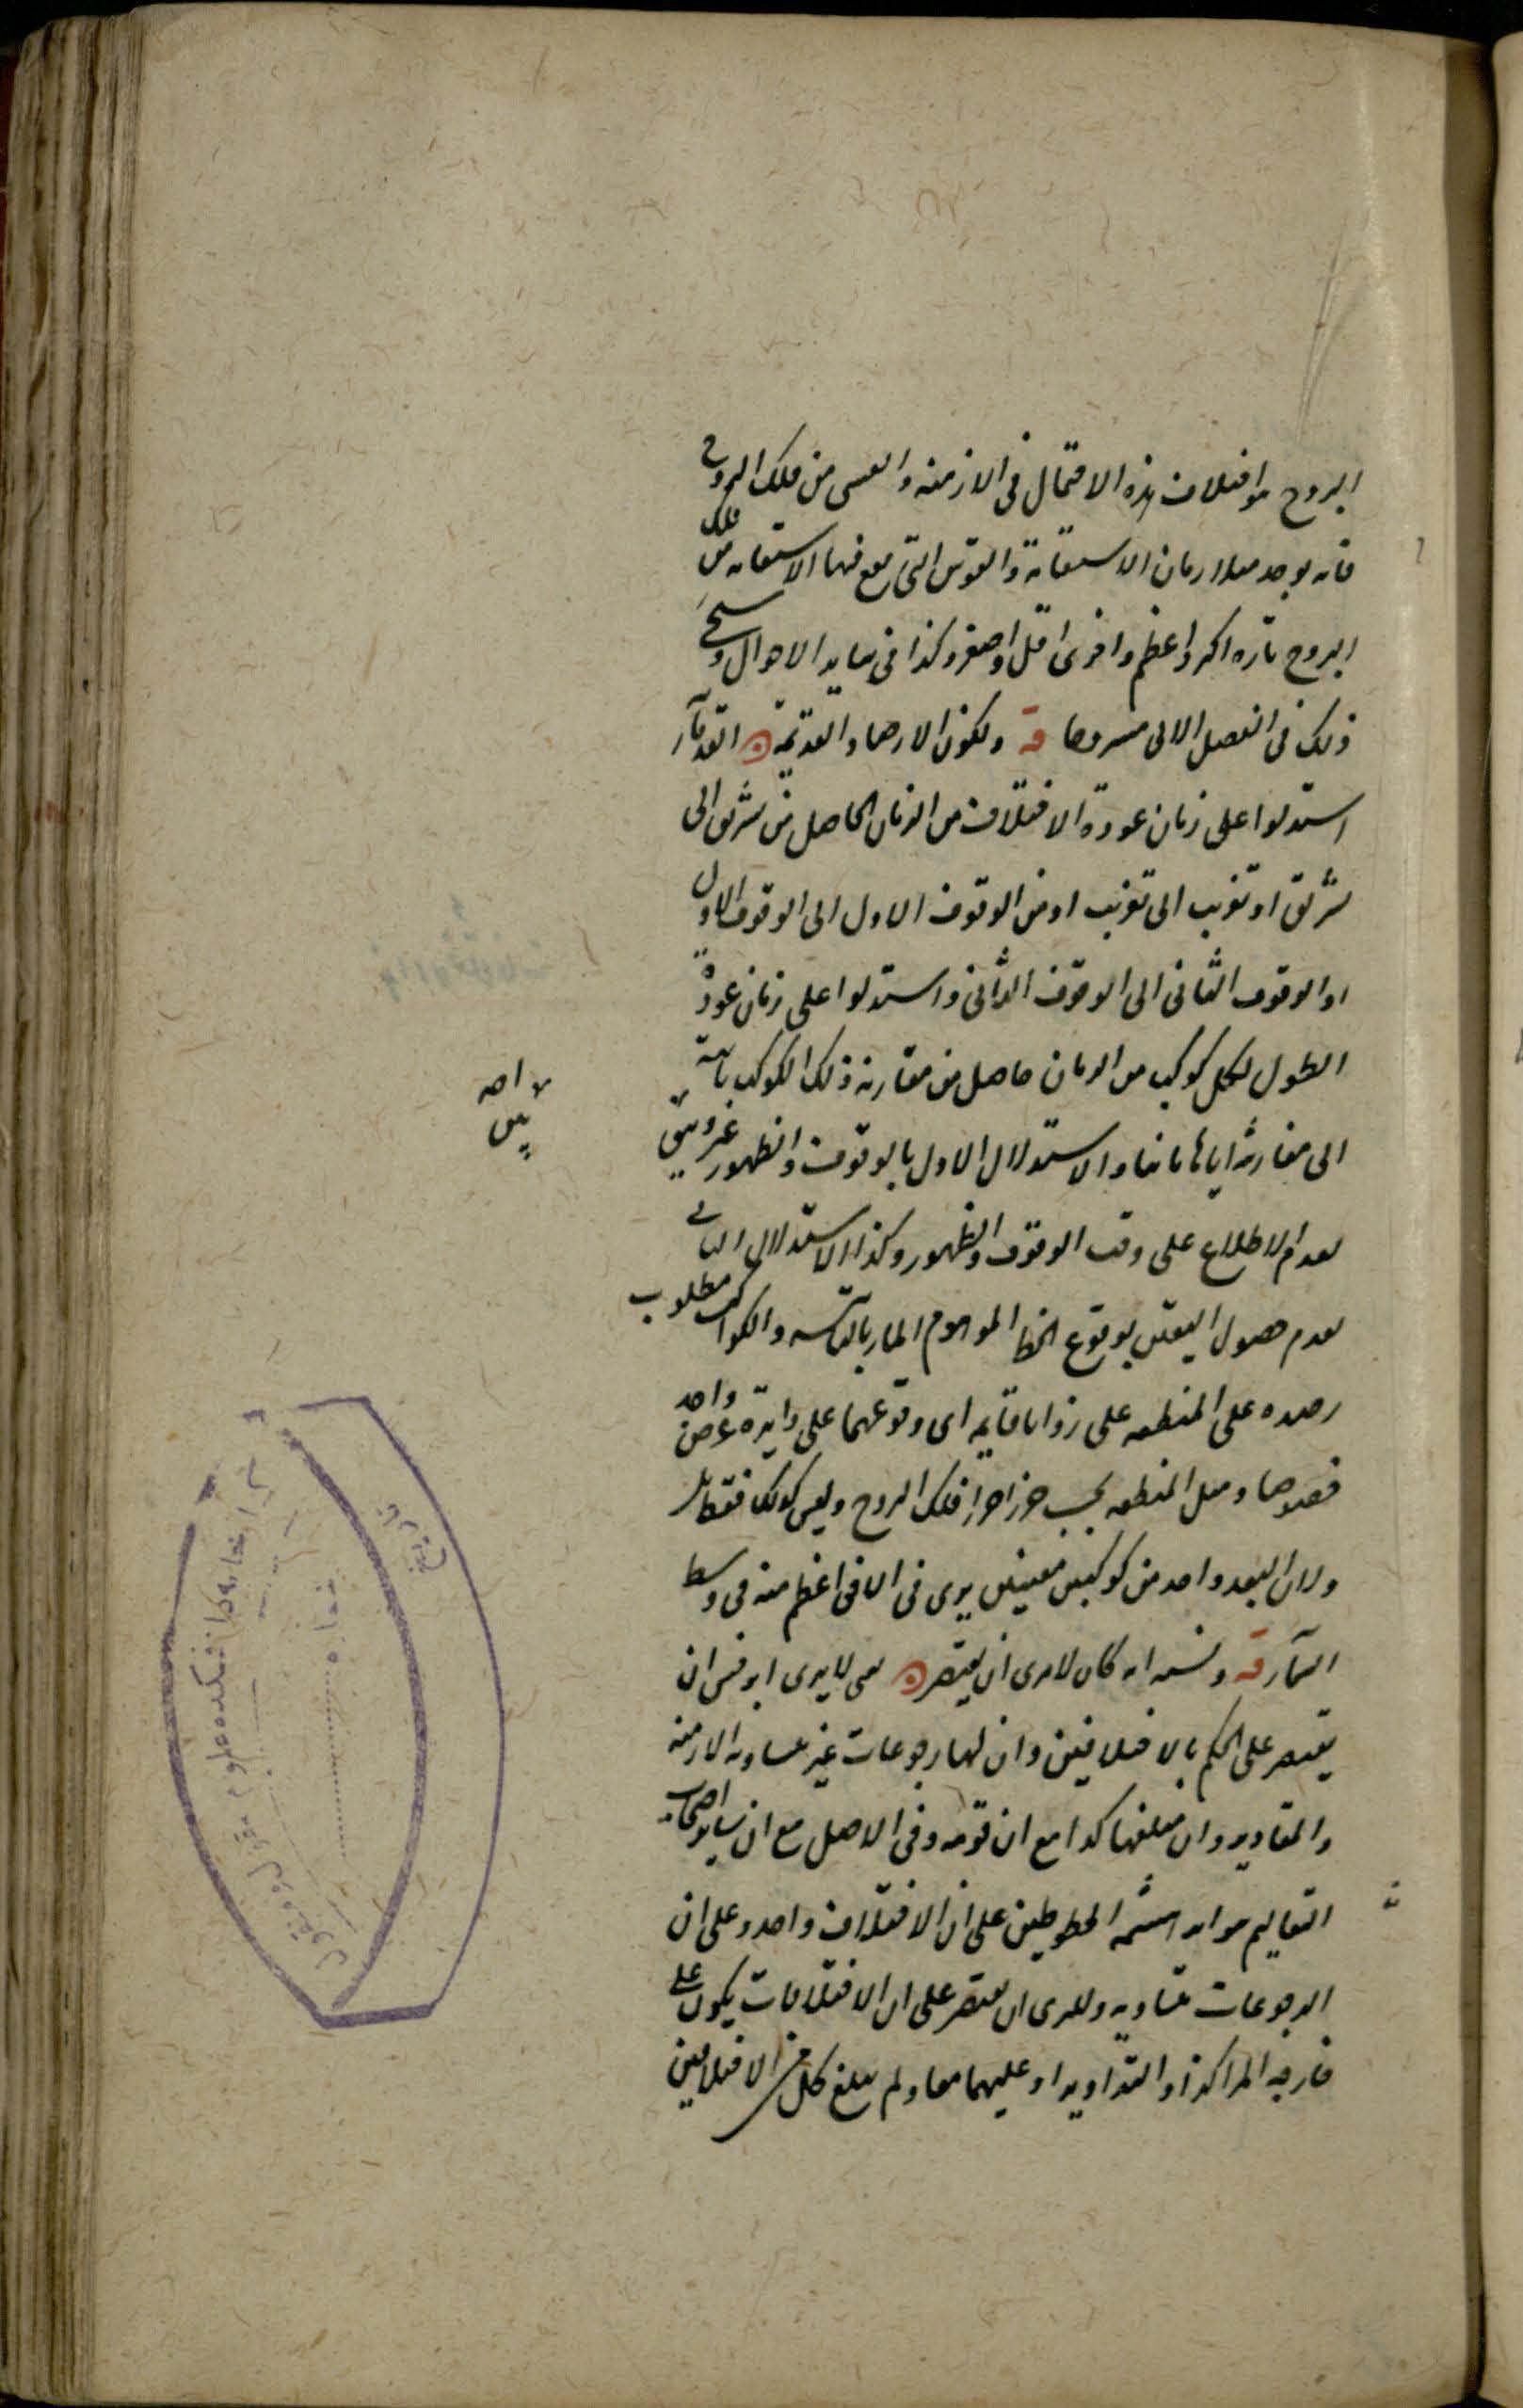 البروج هو اختلاف هذه الاحوال فى الازمنه والقسى من فلك البروج
فانه يوجد مثلا زمان الاستقامة والقوس التى يقع فيها الاستقامه من فلك
البروج تارة اكبر واعظم واخرى اقل واصغر وكذا فى ساير الاحوال وسيجى
ذلك فى الفصل الاتى مشروحا قه ولكون الارصاد القديمة القدمآ
استدلوا على زمان عودة الاختلاف من الزمان الحاصل من تشريق الى
تشريق او تغريب الى تغريب او من الوقوف الاول الى الوقوف الاول
او الوقوف الثانى الى الوقوف الثانى واستدلوا على زمان عودة
الطول لكل كوكب من الزمان حاصل من مقارنة ذلك الكوكب
الى مقارنته اياها ثانيا والاستدلال الاول بالوقوف والظهور غير وثيق
لعدم الاطلاع على وقت الوقوف والظهور وكذا الاستدلال الثانى
لعدم حصول اليقين بوقوع الخط الموهوم المار بالثابته والكواكب مطلوب
رصده على المنطقه على زوايا قايمه اى وقوعهما على دايرة عرض واحد
ومن المنطقه بحسب جزء اجزاء فلك البروج وليس كذلك فقط بل
ولان البعد واحد من كوكبين معينين يرى فى الافق اعظم منه فى وسط
السمآء قه انه كان لا يرى ان يقتصر يعنى لا يرى ابرخس ان
يقتصر على الحكم بالاختلافين وان لهما رجوعات غير متساويه الازمنه
والمقادير وان مبلغهما كذا مع ان قومه وفى الاصل مع ان ساير اصحاب
التعاليم الخطوطيين على ان الاختلاف واحد وعلى ان
الرجوعات متساويه ولا يرى ان يقتصر على ان الاختلافات يكون على
خارجه المراكز او التداوير او عليهما معا ولم يبلغ كل من الاختلافين
كتابخانه دانشكده علوم معقول ومنقول
شماره
تاريخ